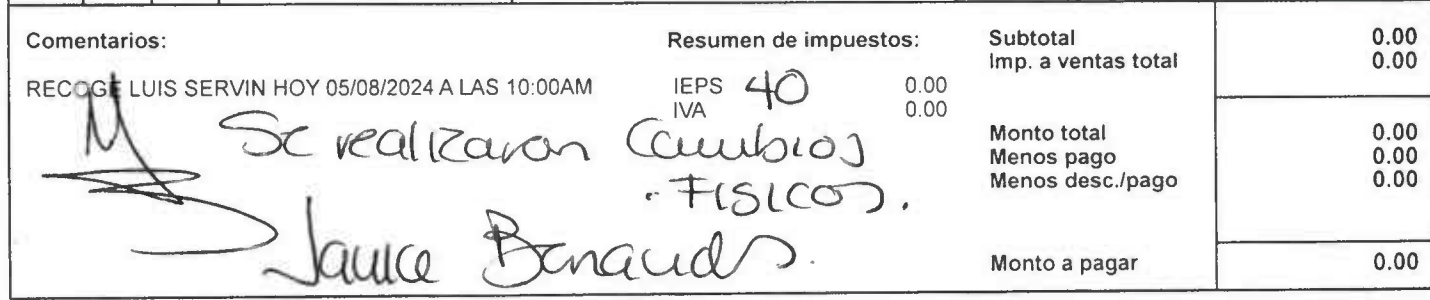 Comentarios:
RECOGE LUIS SERVIN HOY 05/08/2024 A LAS 10:00AM
Se realizaron Cambios
Fisicos.
Resumen de impuestos:
IEPS 40 0.00
IVA 0.00
Subtotal 0.00
Imp. a ventas total 0.00
Monto total 0.00
Menos pago 0.00
Menos desc./pago 0.00
Monto a pagar 0.00